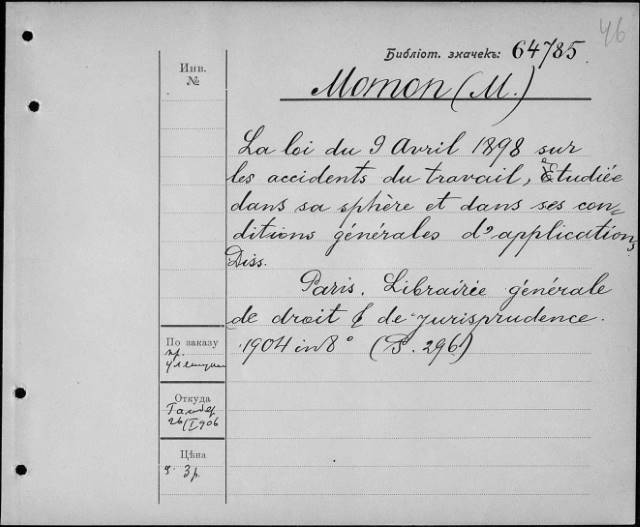 46
Библіот. значекъ: 64785.
Инв. №
Momon (M.)
La loi du 9 Avril 1898 sur
les accidents du travail, Etudiée
dans sa sphère et dans ses con-
ditions générales d'application,
Diss.
Paris. Librairée générale
de droit & de jurisprudence.
1904 in 8° (S. 296)
По заказу
пр.
Откуда
26/I 906
Цѣна
3 р.